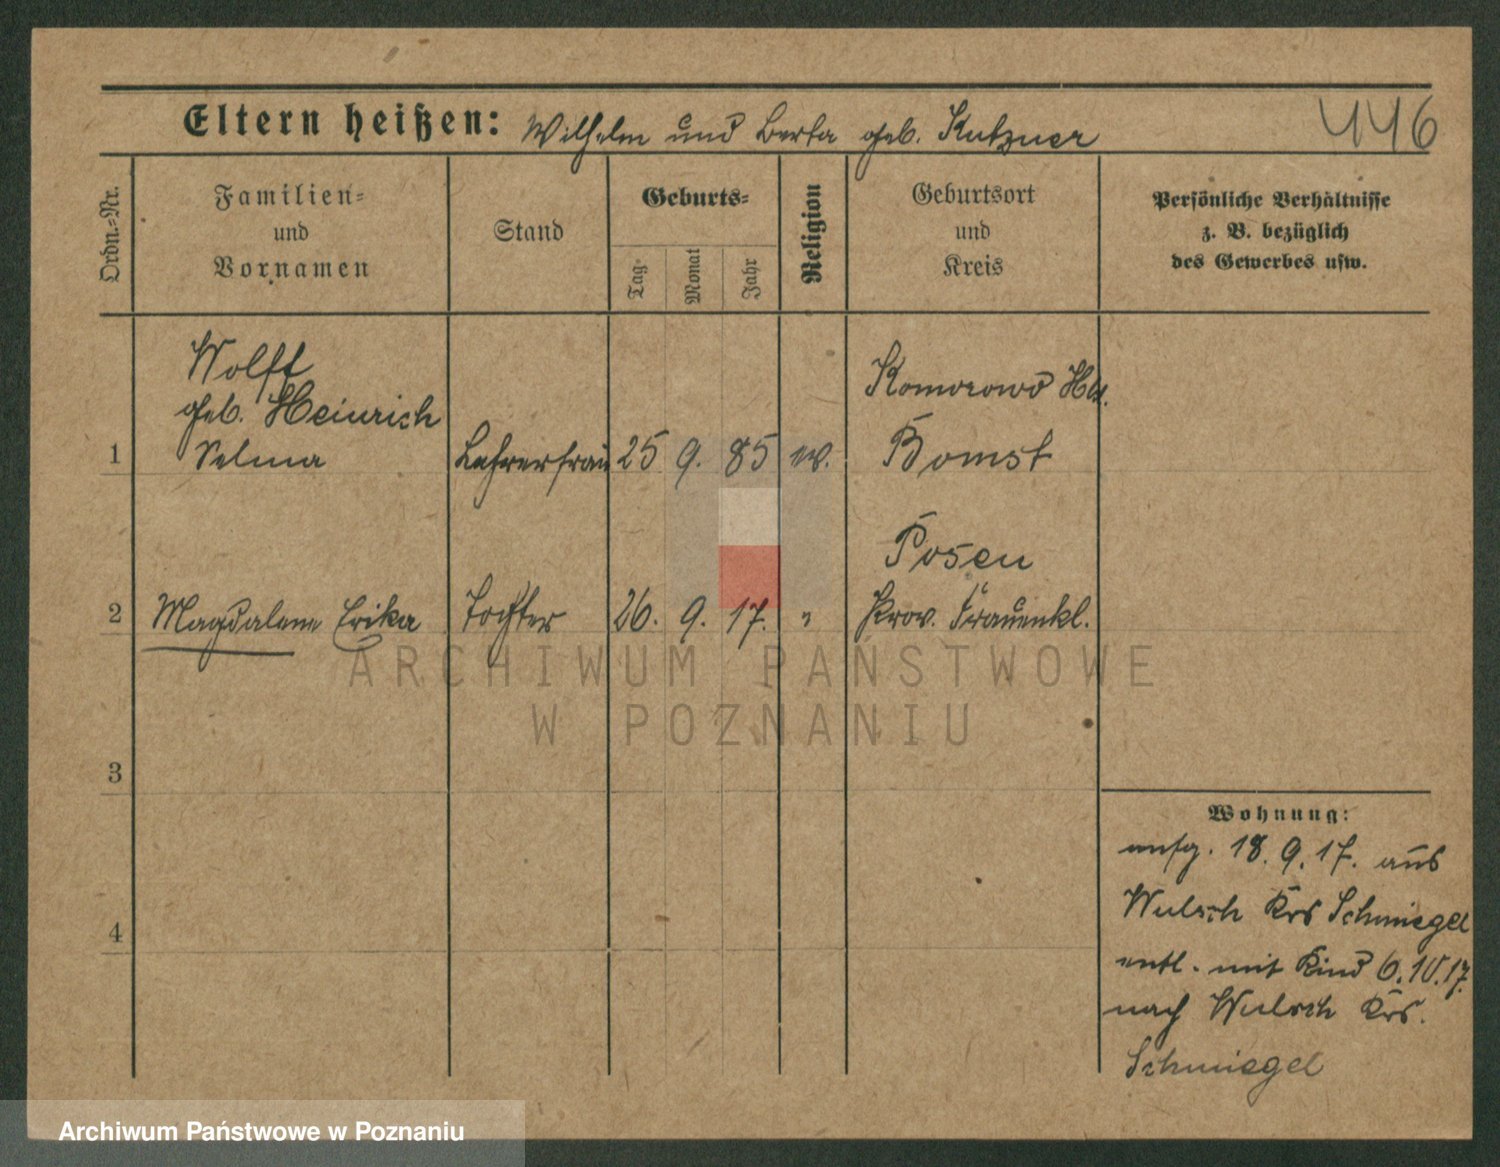 Eltern heißen: Wilhelm und Berta geb. Kutzner
446
Ordn.-Nr.
Familien- und Vornamen
Stand
Geburts-
Tag
Monat
Jahr
Religion
Geburtsort und Kreis
Persönliche Verhältnisse
z. B. bezüglich
des Gewerbes usw.
Wolff
geb. Heinrich
1 Selma Lehrerfrau 25 9. 85 ev.
Komorowo
Bomst
Posen
2 Magdalene Erika Tochter 26. 9. 17. " Prov. Frauenkl.
3
4
Wohnung:
aufg. 18.9.17. aus
Wulsch Krs Schmiegel
entl. mit Kind 6.10.17.
nach Wulsch Krs.
Schmiegel
ARCHIWUM PAŃSTWOWE
W POZNANIU
Archiwum Państwowe w Poznaniu